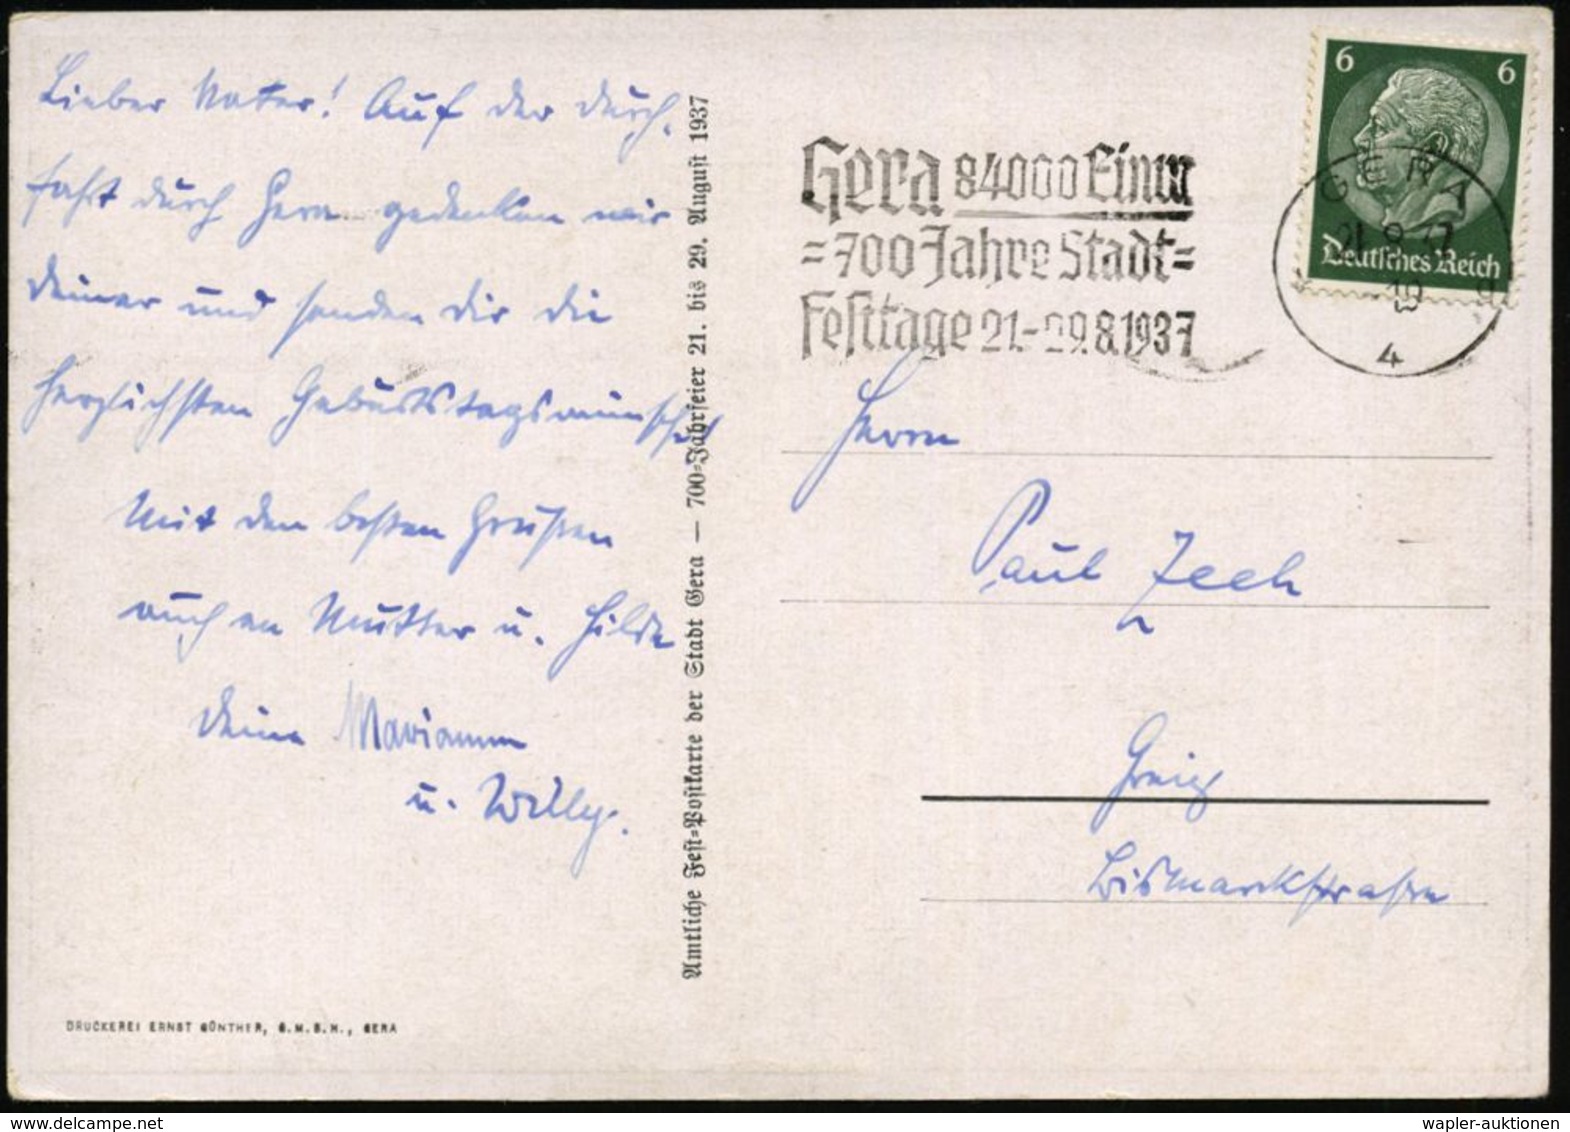 Lieber Vater! Auf der Durch-
fahrt durch Gera gedenken wir
Deiner und senden Dir die
herzlichsten Geburtstagswünsche!
Mit den besten Grüßen
auch an Mutter u. Hilde
Deine Marianne
u. Willy.
DRUCKEREI ERNST GÜNTHER, G.M.B.H., GERA
Amtliche Fest=Postkarte der Stadt Gera — 700=Jahrfeier 21. bis 29. August 1937
Gera 84000 Einw
=700 Jahre Stadt=
Festtage 21.-29.8.1937
6 6
Deutsches Reich
GERA
4
Herrn
Paul Zech
Greiz
Bismarckstraße
wapler-auktionen